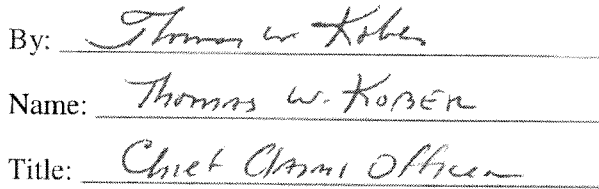 By: Thomas W. Kober
Name: Thomas W. KOBER
Title: Chief Claims Officer